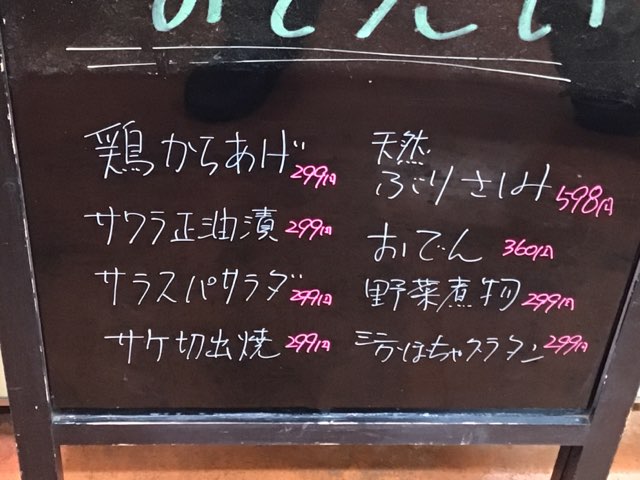 鶏からあげ 299円
サワラ正油漬 299円
サラスパサラダ 299円
サケ切出焼 299円
天然
ぶりさしみ 598円
おでん 360円
野菜煮物 299円
ミニかぼちゃグラタン 299円